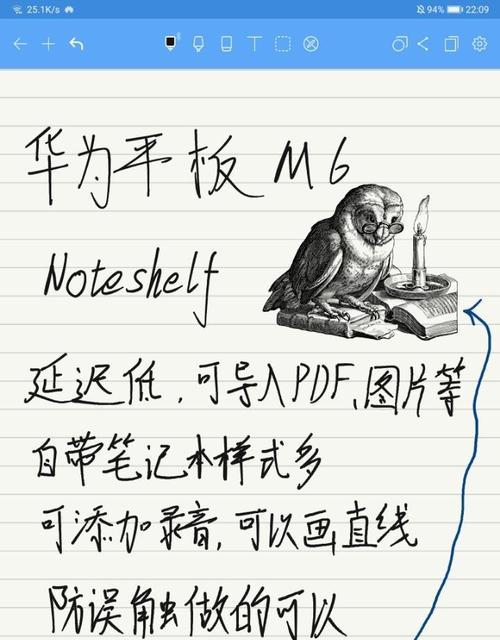 25.1K/s 94% 22:09
华为平板 M6
Noteshelf
延迟低，可导入PDF、图片等
自带笔记本样式多
可添加录音，可以画直线
防误触做的可以